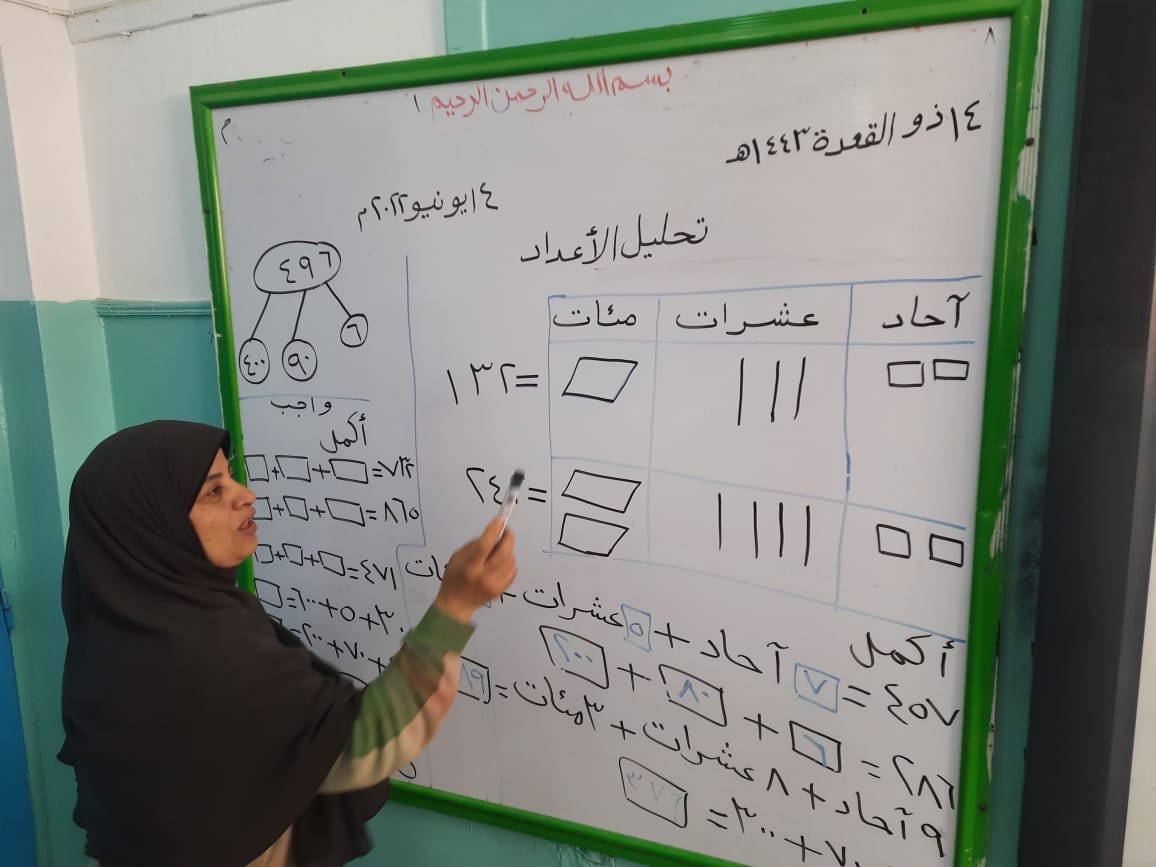 بسم الله الرحمن الرحيم
١٤ ذو القعدة ١٤٤٣هـ
١٤ يونيو ٢٠٢٢م
تحليل الأعداد
آحاد عشرات مئات
= ١٣٢
= ٢٤
أكمل
٤٥٧ = ٧ آحاد + ٥ عشرات +
٢٨٦ = ٦ + ٨٠ + ٢٠٠
٩ آحاد + ٨ عشرات + ٣ مئات =
+ ٣٠٠ =
٤٩٦
٦ ٩٠ ٤٠٠
واجب
أكمل
٧٣٢ = □ + □ + □
٨٦٥ = □ + □ + □
٤٧١ = □ + □ + □
٣٠ + ٥ + ٦٠٠ = □
+ ٧٠ + ٢٠٠ =